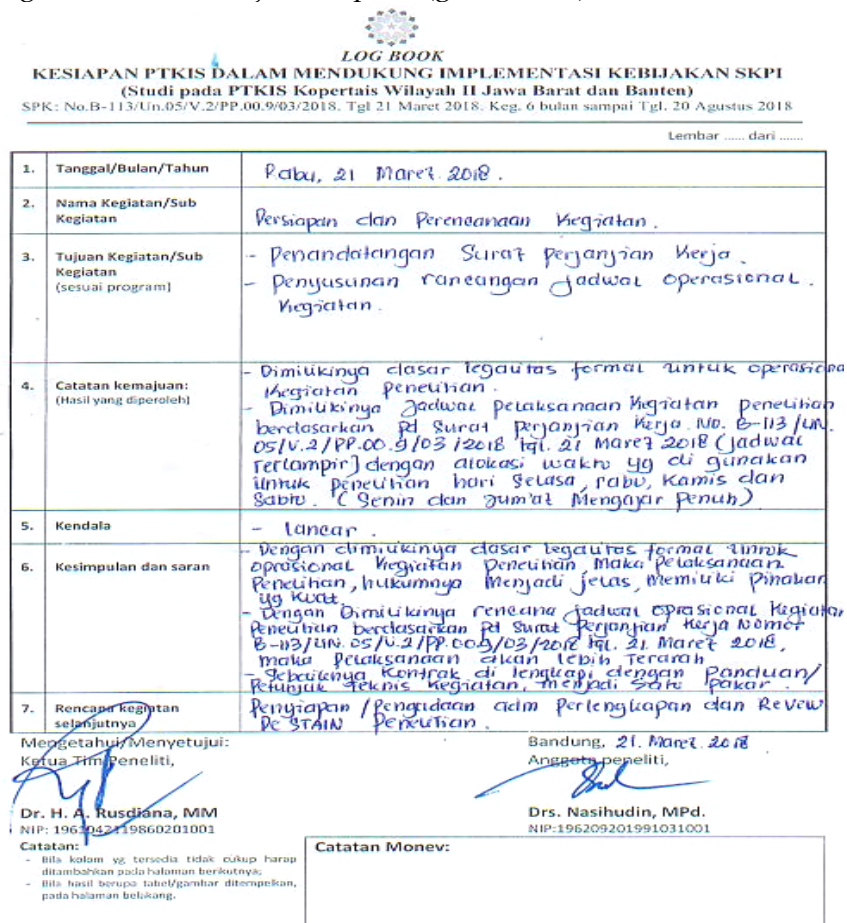 LOG BOOK
KESIAPAN PTKIS DALAM MENDUKUNG IMPLEMENTASI KEBIJAKAN SKPI
(Studi pada PTKIS Kopertais Wilayah II Jawa Barat dan Banten)
SPK: No.B-113/Un.05/V.2/PP.00.9/03/2018. Tgl 21 Maret 2018. Keg. 6 bulan sampai Tgl. 20 Agustus 2018
Lembar ...... dari .......
1. Tanggal/Bulan/Tahun
Rabu, 21 Maret 2018.
2. Nama Kegiatan/Sub
Kegiatan
Persiapan dan Perencanaan Kegiatan.
3. Tujuan Kegiatan/Sub
Kegiatan
(sesuai program)
- Penandatangan Surat perjanjian Kerja.
- Penyusunan rancangan Jadwal operasional.
Kegiatan.
4. Catatan kemajuan:
(Hasil yang diperoleh)
- Dimilikinya dasar legalitas formal untuk operasional
Kegiatan penelitian.
- Dimilikinya Jadwal pelaksanaan Kegiatan penelitian
berdasarkan pd Surat perjanjian Kerja No. B-113/UN.
05/V.2/PP.00.9/03/2018 tgl. 21 Maret 2018 (Jadwal
terlampir] dengan alokasi waktu yg di gunakan
Untuk penelitian hari Selasa, rabu, Kamis dan
Sabtu. (Senin dan Jum'at Mengajar Penuh)
5. Kendala
- lancar.
6. Kesimpulan dan saran
- Dengan dimilikinya dasar legalitas formal untuk
oprasional Kegiatan penelitian, Maka Pelaksanaan
Penelitian, hukumnya Menjadi jelas, Memiliki Pinakan
yg Kuat
- Dengan Dimilikinya rencana jadwal oprasional Kegiatan
Penelitian berdasarkan pd Surat Perjanjian Kerja Nomor
B-113/UN.05/V.2/PP.00.9/03/2018 tgl. 21. Maret 2018,
maka Pelaksanaan akan lebih Terarah
- Sebaiknya Kontrak di lengkapi dengan Panduan/
Petunjuk teknis Kegiatan, menjadi satu pakar.
7. Rencana kegiatan
selanjutnya
Penyiapan /Pengadaan adm perlengkapan dan Revew
De STAIN Penelitian.
Mengetahui/Menyetujui:
Ketua Tim Peneliti,
Bandung, 21. Maret. 2018
Anggota peneliti,
Dr. H. A. Rusdiana, MM
NIP: 1961042119860201001
Drs. Nasihudin, MPd.
NIP:196209201991031001
Catatan:
- Bila kolom yg tersedia tidak cukup harap
ditambahkan pada halaman berikutnya;
- Bila hasil berupa tabel/gambar ditempelkan,
pada halaman belakang.
Catatan Monev: